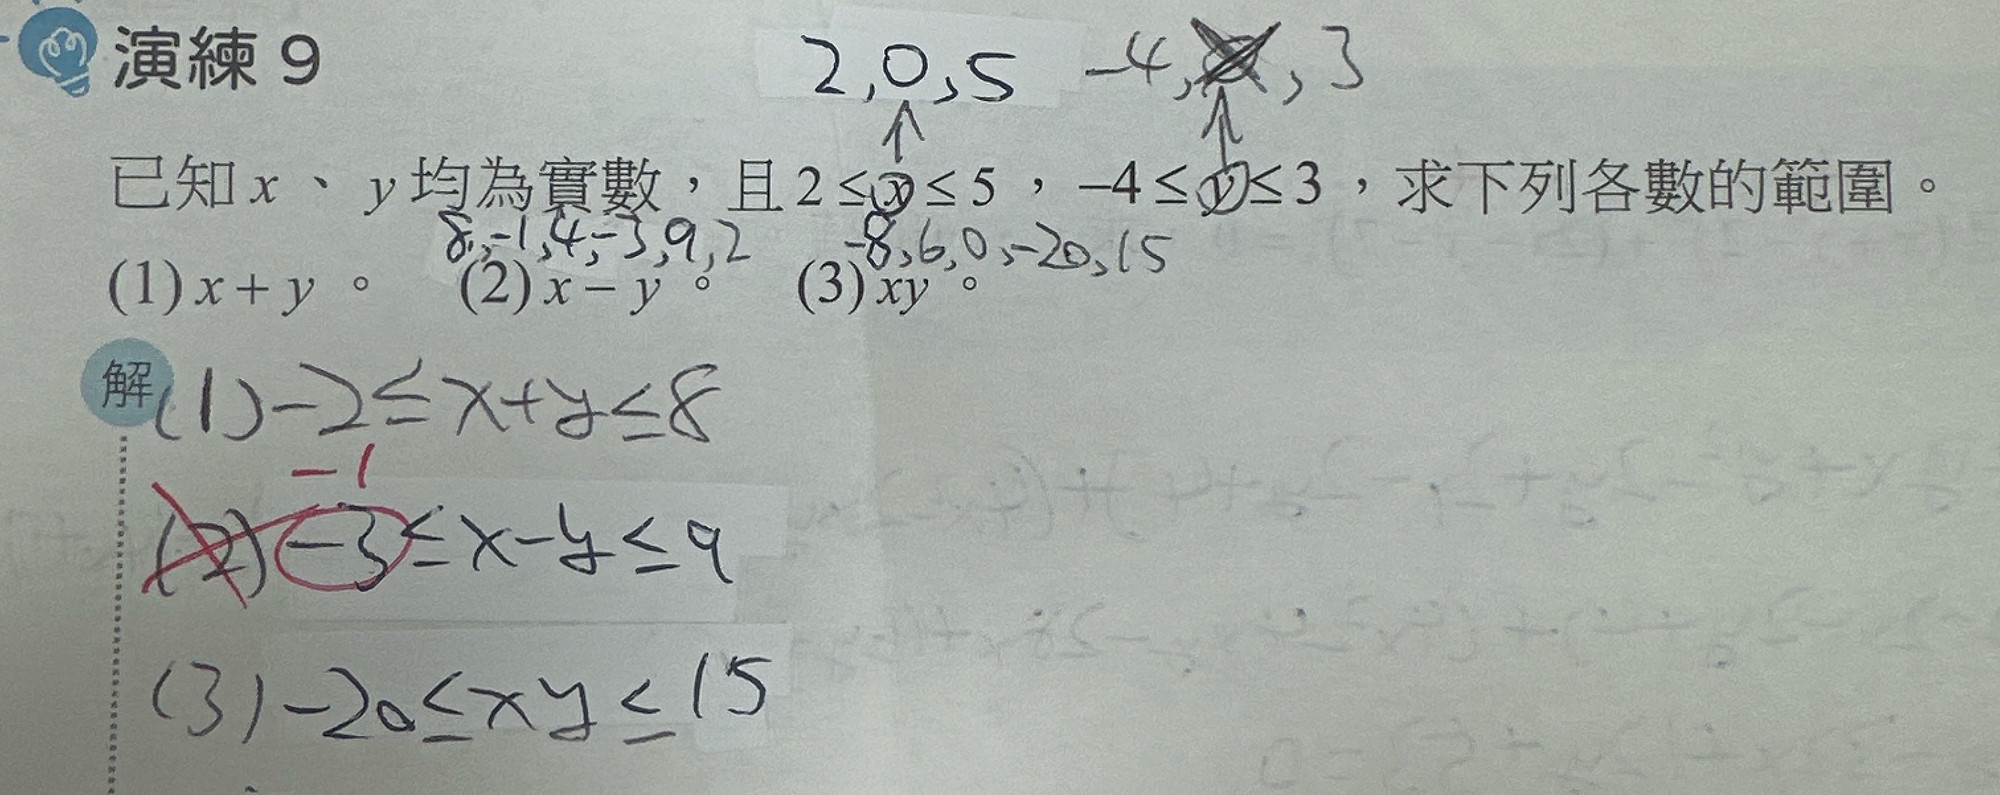 演練 9
2,0,5 -4, , 3
已知 x、y 均為實數,且 2 ≤ x ≤ 5,-4 ≤ y ≤ 3,求下列各數的範圍。
8,-1,4,-3,9,2 -8,6,0,-20,15
(1) x + y。 (2) x - y。 (3) xy。
解 (1) -2 ≤ x+y ≤ 8
-1
(2) -3 ≤ x-y ≤ 9
(3) -20 ≤ xy ≤ 15